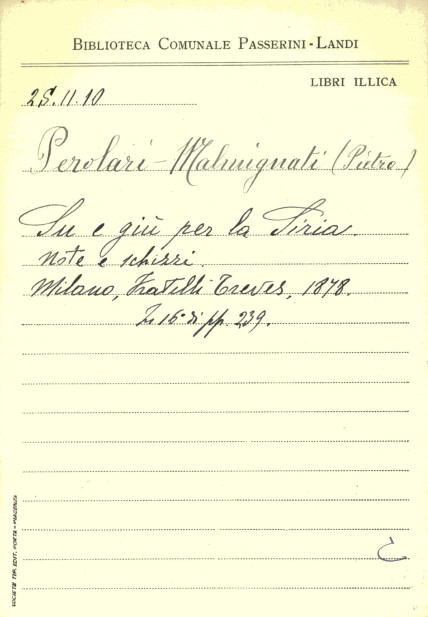 BIBLIOTECA COMUNALE PASSERINI-LANDI
LIBRI ILLICA
2S.11.10
Perolari-Malmignati (Pietro)
Su e giù per la Siria.
Note e schizzi.
Milano, Fratelli Treves, 1878.
In 16° di pp. 239.
SOCIETÀ TIP. EDIT. PORTA - PIACENZA